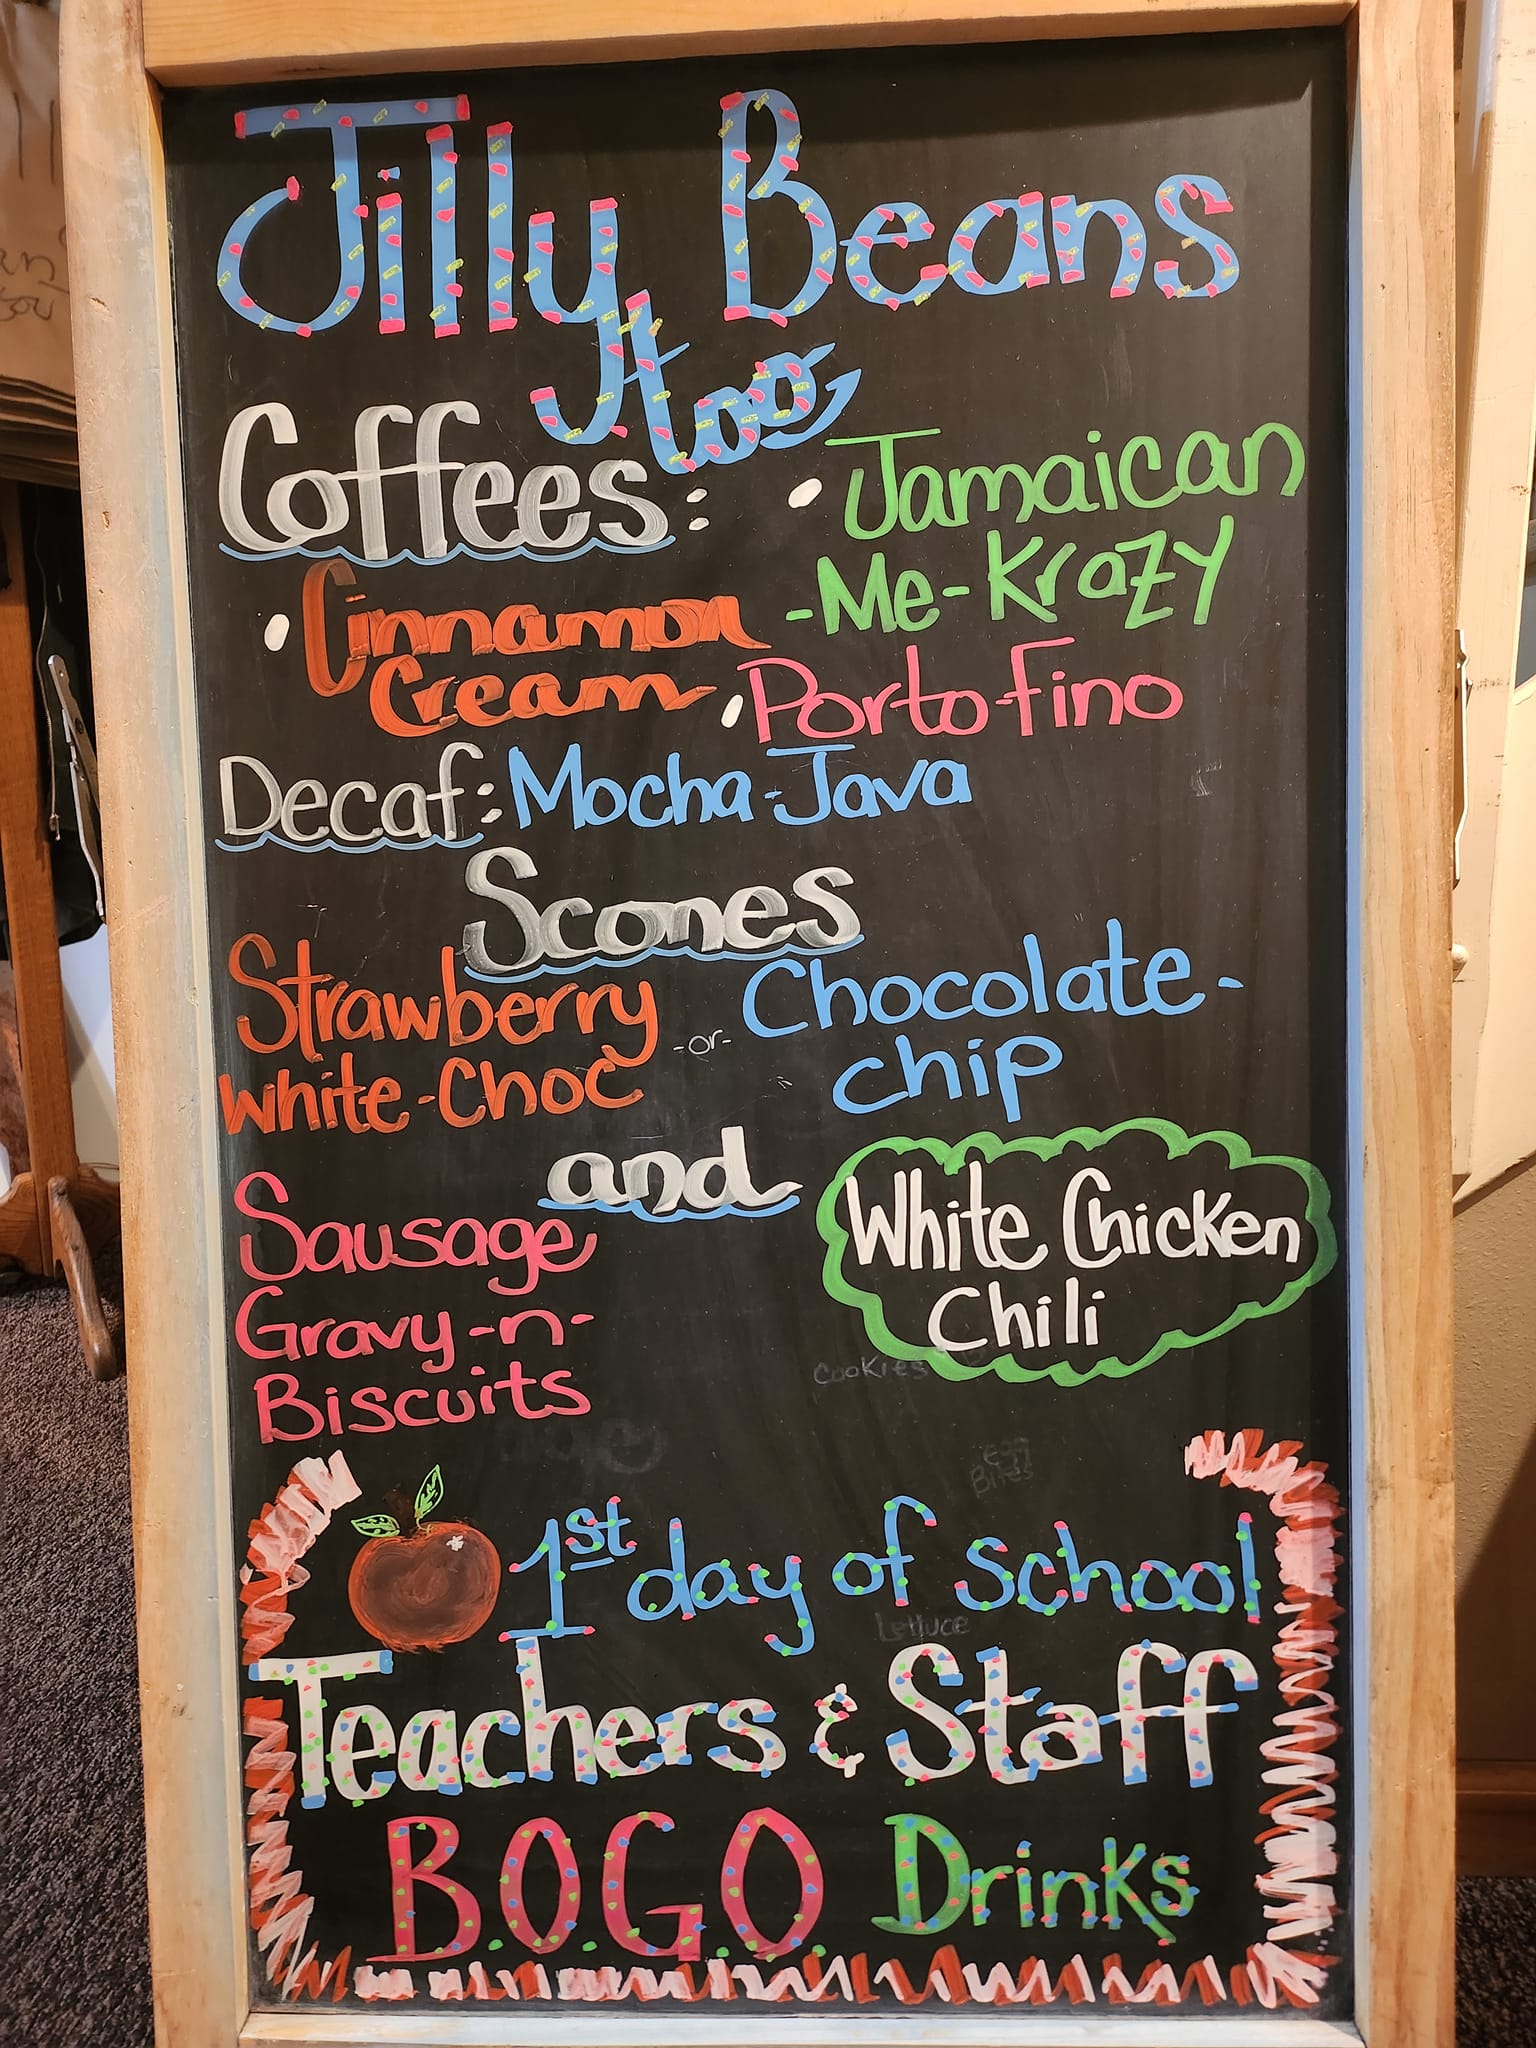 Jilly Beans
too
Coffees:
• Cinnamon
Cream
• Jamaican
-Me-Krazy
• Porto-fino
Decaf: Mocha-Java
Scones
Strawberry
White-Choc
-or-
Chocolate-
chip
and
Sausage
Gravy-n-
Biscuits
White Chicken
Chili
Cookies
Egg
Bites
1st day of school
Lettuce
Teachers & Staff
B.O.G.O. Drinks